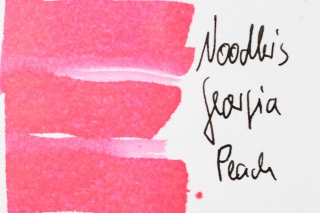 Noodlers
Georgia
Peach